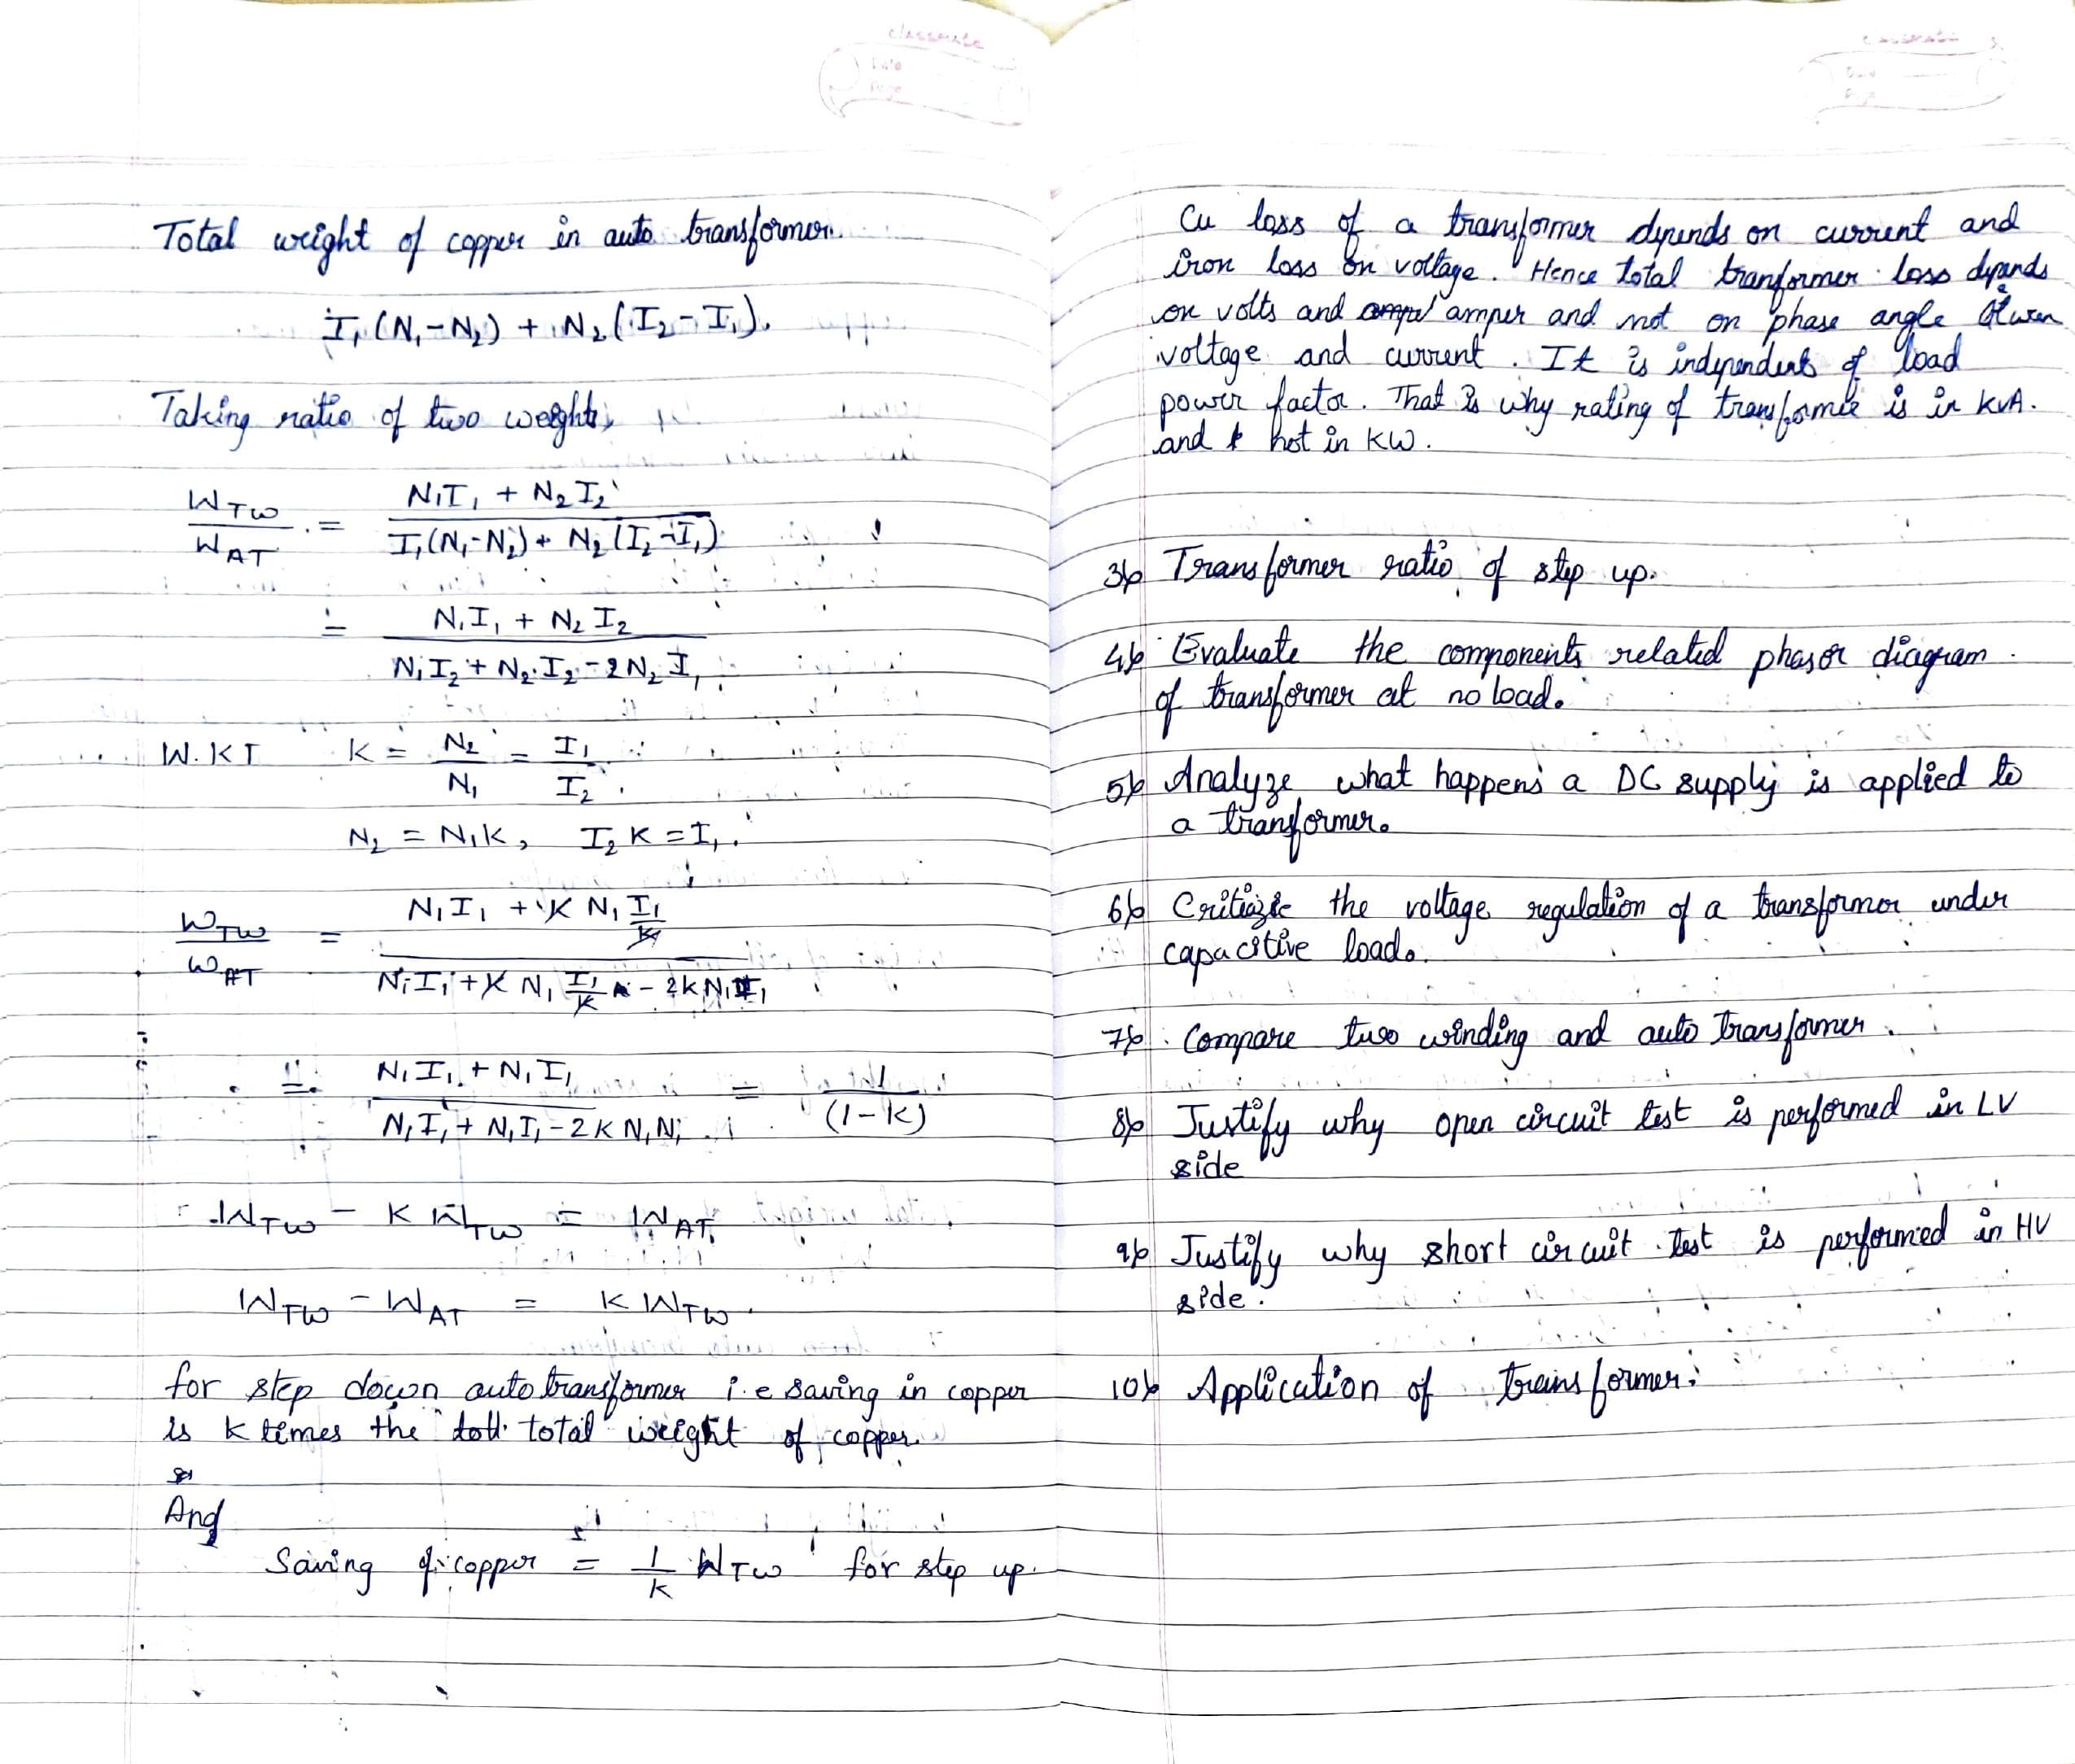 classmate
Date
Page
Total weight of copper in auto transformer.
I₁ (N₁ - N₂) + N₂ (I₂ - I₁).
Taking ratio of two weights,
W_TW / W_AT = (N₁I₁ + N₂I₂) / (I₁(N₁-N₂) + N₂(I₂-I₁))
= (N₁I₁ + N₂I₂) / (N₁I₂ + N₂I₂ - 2N₂I₁)
W.K.T K = N₂/N₁ = I₁/I₂.
N₂ = N₁K, I₂K = I₁.
W_TW / W_AT = (N₁I₁ + K N₁ I₁/K) / (N₁I₁ + K N₁ I₁/K - 2K N₁I₁)
= (N₁I₁ + N₁I₁) / (N₁I₁ + N₁I₁ - 2K N₁N₁) = 1/(1-K)
W_TW - K W_TW = W_AT
W_TW - W_AT = K W_TW.
for step down auto transformer i.e saving in copper
is K times the total weight of copper.
And
Saving of copper = 1/K W_TW for step up.
classmate
Date
Page
Cu loss of a transformer depends on current and
iron loss on voltage. Hence total tranformer loss depends
on volts and amper and not on phase angle
voltage and current. It is independent of load
power factor. That is why rating of transformer is in KVA.
and not in KW.
3) Transformer ratio of step up.
4) Evaluate the components related phasor diagram
of transformer at no load.
5) Analyze what happens a DC supply is applied to
a tranformer.
6) the voltage regulation of a transformer under
capacitive load.
7) Compare two winding and auto transformer.
8) Justify why open circuit test is performed in LV
side
9) Justify why short circuit test is performed in HV
side.
10) Application of transformer.